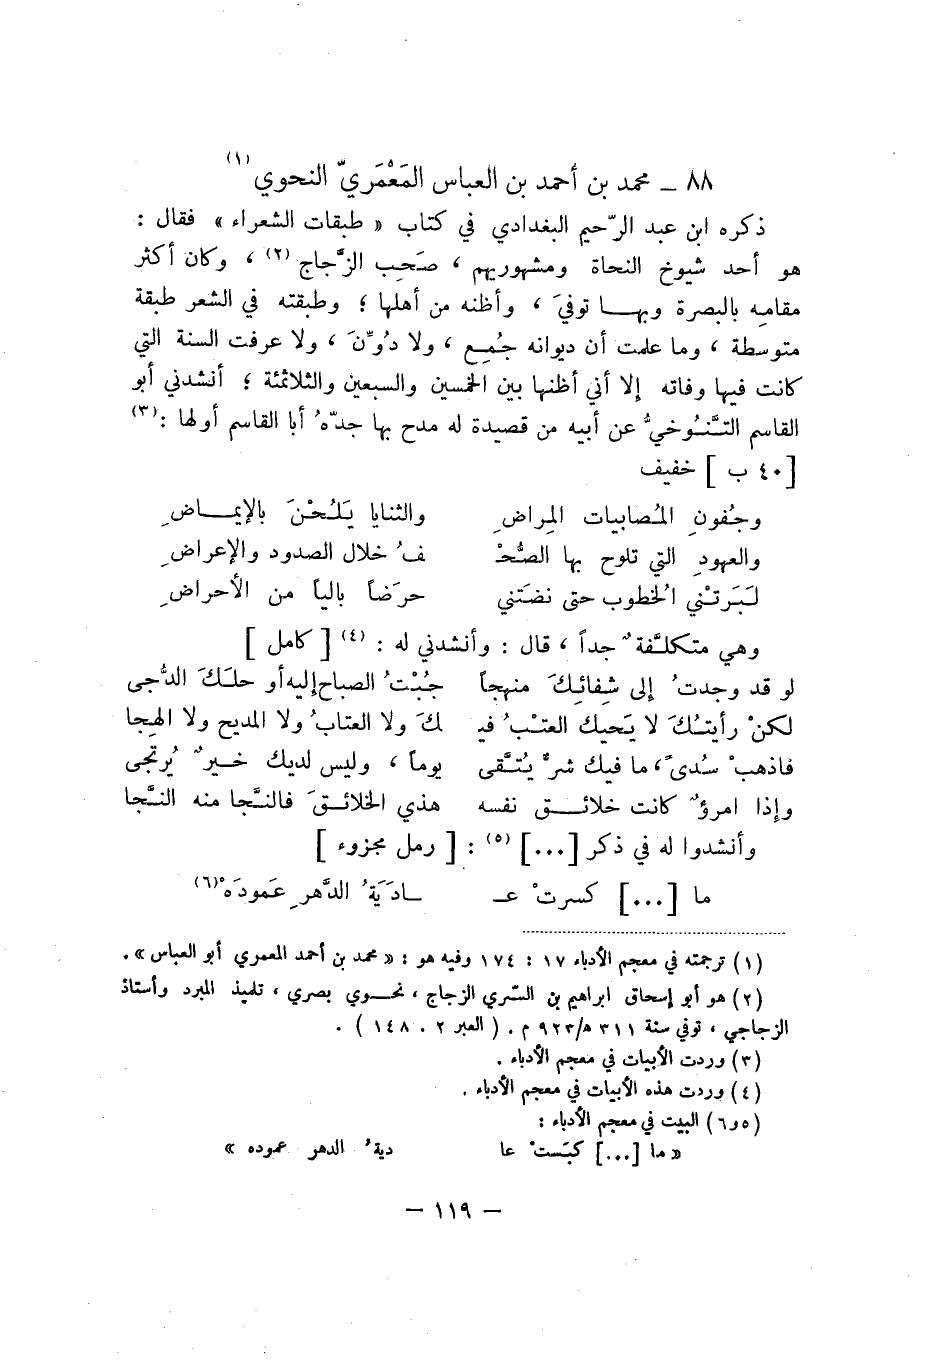 ٨٨ ــ محمد بن أحمد بن العباس المَعْمَريّ النحوي (١)
ذكره ابن عبد الرّحيم البغدادي في كتاب « طبقات الشعراء » فقال :
هو أحد شيوخ النحاة ومشهوريهم ، صَحِب الزَّجاج (٢) ، وكان أكثر
مقامه بالبصرة وبهـــا توفيَ ، وأظنه من أهلها ؛ وطبقته في الشعر طبقة
متوسطة ، وما علمت أن ديوانه جُمِع ، ولا دُوِّنَ ، ولا عرفت السنة التي
كانت فيها وفاته إلا أني أظنها بين الخمسين والسبعين والثلاثمئة ؛ أنشدني أبو
القاسم التَّنُوخيُّ عن أبيه من قصيدة له مدح بها جدّهُ أبا القاسم أولها :(٣)
[٤٠ ب ] خفيف
وجُفونِ المُصابيات المِراضِ والثنايا يَلُحْنَ بالإيمــاضِ
والعهودِ التي تلوح بها الصُّحْـ ـفُ خلال الصدود والإعراضِ
لَبَرتْني الخطوب حتى نضَتني حرَضاً بالياً من الأحراضِ
وهي متكلَّفةٌ جداً ، قال : وأنشدني له : (٤) [ كامل ]
لو قد وجدتُ إلى شِفائِكَ منهجا جُبْتُ الصباح إليه أو حلَكَ الدُّجى
لكنْ رأيتُكَ لا يَحيك العتْبُ فيـ ـكَ ولا العتابُ ولا المديح ولا الهجا
فاذهبْ سُدىً ، ما فيك شرٌّ يُتَّقى يوماً ، وليس لديك خـيرٌ يُرتجى
وإذا امرؤٌ كانت خلائــق نفسه هذي الخلائقَ فالنَّجا منه النَّجا
وأنشدوا له في ذكر [...] (٥) : [ رمل مجزوء ]
ما [...] كسرتْ عـ ـادَيَةُ الدَّهرِ عَمودَهْ(٦)
(١) ترجمته في معجم الأدباء ١٧ : ١٧٤ وفيه هو : « محمد بن أحمد المعمري أبو العباس » .
(٢) هو أبو إسحاق ابراهيم بن السّري الزجاج ، نحــوي بصري ، تلميذ المبرد وأستاذ
الزجاجي ، توفي سنة ٣١١ ه/٩٢٣ م . ( العبر ٢ . ١٤٨ ) .
(٣) وردت الأبيات في معجم الأدباء .
(٤) وردت هذه الأبيات في معجم الأدباء .
(٥ و٦) البيت في معجم الأدباء :
« ما [...] كبَستْ عا ديةُ الدهر عموده »
— ١١٩ —